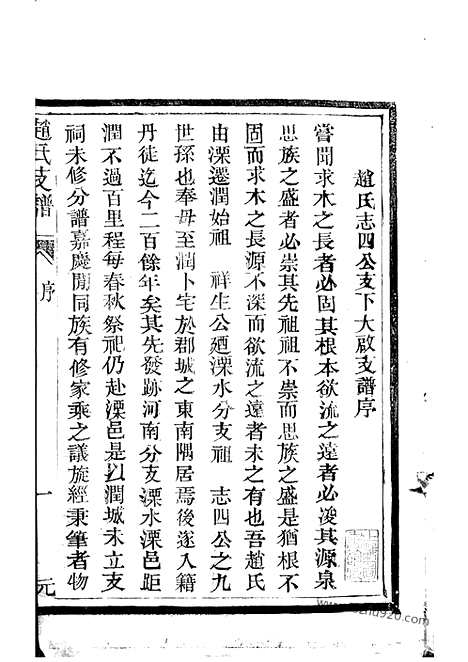 趙氏志四公支下大啟支譜序
嘗聞求木之長者必固其根本欲流之遠者必浚其源泉
思族之盛者必崇其先祖祖不崇而思族之盛是猶根不
固而求木之長源不深而欲流之遠者未之有也吾趙氏
由溧遷潤始祖 祥生公廼溧水分支祖 志四公之九
世孫也奉母至潤卜宅於郡城之東南隅居焉後遂入籍
丹徒迄今二百餘年矣其先發跡河南分支溧水溧邑距
潤不過百里程每春秋祭祀仍赴溧邑是以潤城未立支
祠未修分譜嘉慶閒同族有修家乘之議旋經秉筆者物
趙氏支譜 序 一 元